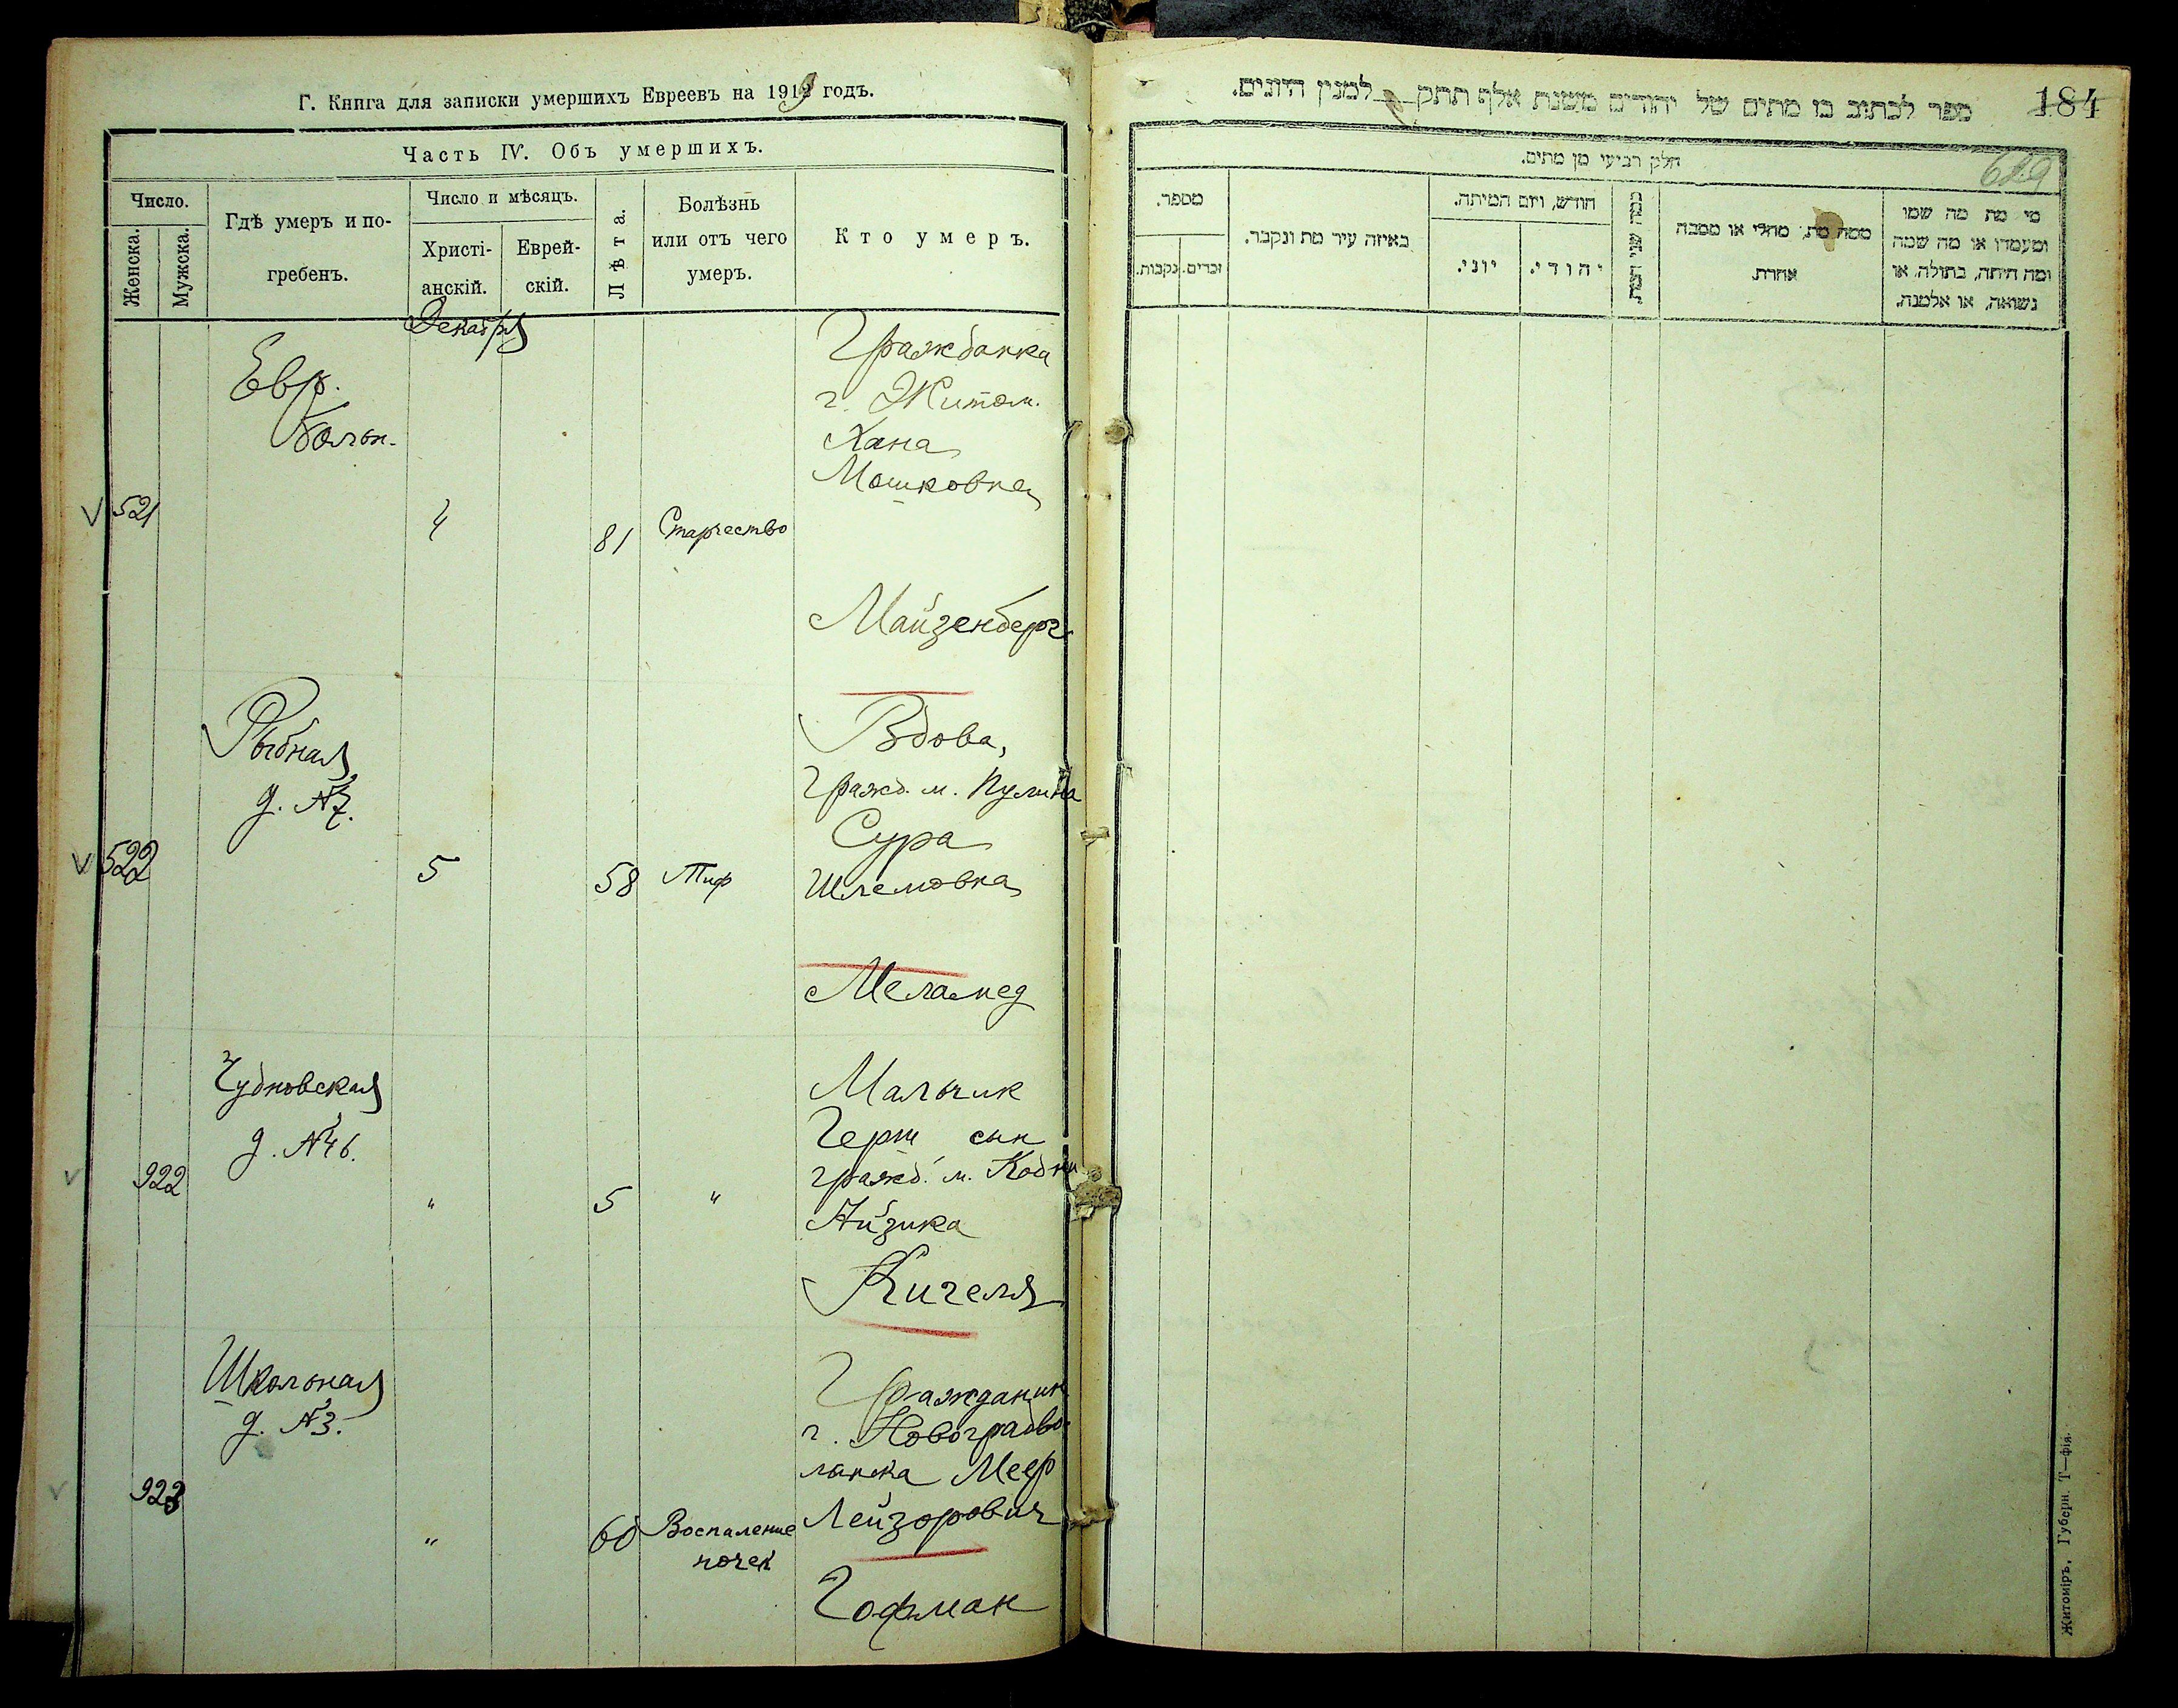 Г. Книга для записки умершихъ Евреевъ на 1919 годъ.
Часть IV. Объ умершихъ.
Число.
Женска.
Мужска.
Гдѣ умеръ и по-
гребенъ.
Число и мѣсяцъ.
Христі-
анскій.
Еврей-
скій.
Лѣта.
Болѣзнь
или отъ чего
умеръ.
Кто умеръ.
Декабря
Евр.
Больн.
521
4
81
Старчество
Гражданка
г. Житом.
Хана
Мошковна
Майзенберг
Рыбная
д. №7.
522
5
58
Тиф
Вдова,
Гражд. м. Пулина
Сура
Шлемовна
Меламед
Чудновская
д. №46.
922
"
5
"
Мальчик
Герш сын
гражд. м. Кодни
Айзика
Кигеля
Школьная
д. №3.
923
"
60
Воспаление
почек
Гражданин
г. Новоградво-
лынска Меер
Лейзорович
Гофман
184
ספר לכתוב בו מתים של יהודים משנת אלף תתק למנין היונים.
629
חלק רביעי מן מתים.
מספר.
נקבות.
זכרים.
באיזה עיר מת ונקבר.
חודש, ויום המיתה.
יוני.
יהודי.
כמה שני המת.
ממה מת, מחלי או מסבה
אחרת.
מי מת מה שמו
ומעמדו או מה שמה
ומה היתה, בתולה, או
נשואה, או אלמנה.
Житоміръ, Губерн. Т—фія.